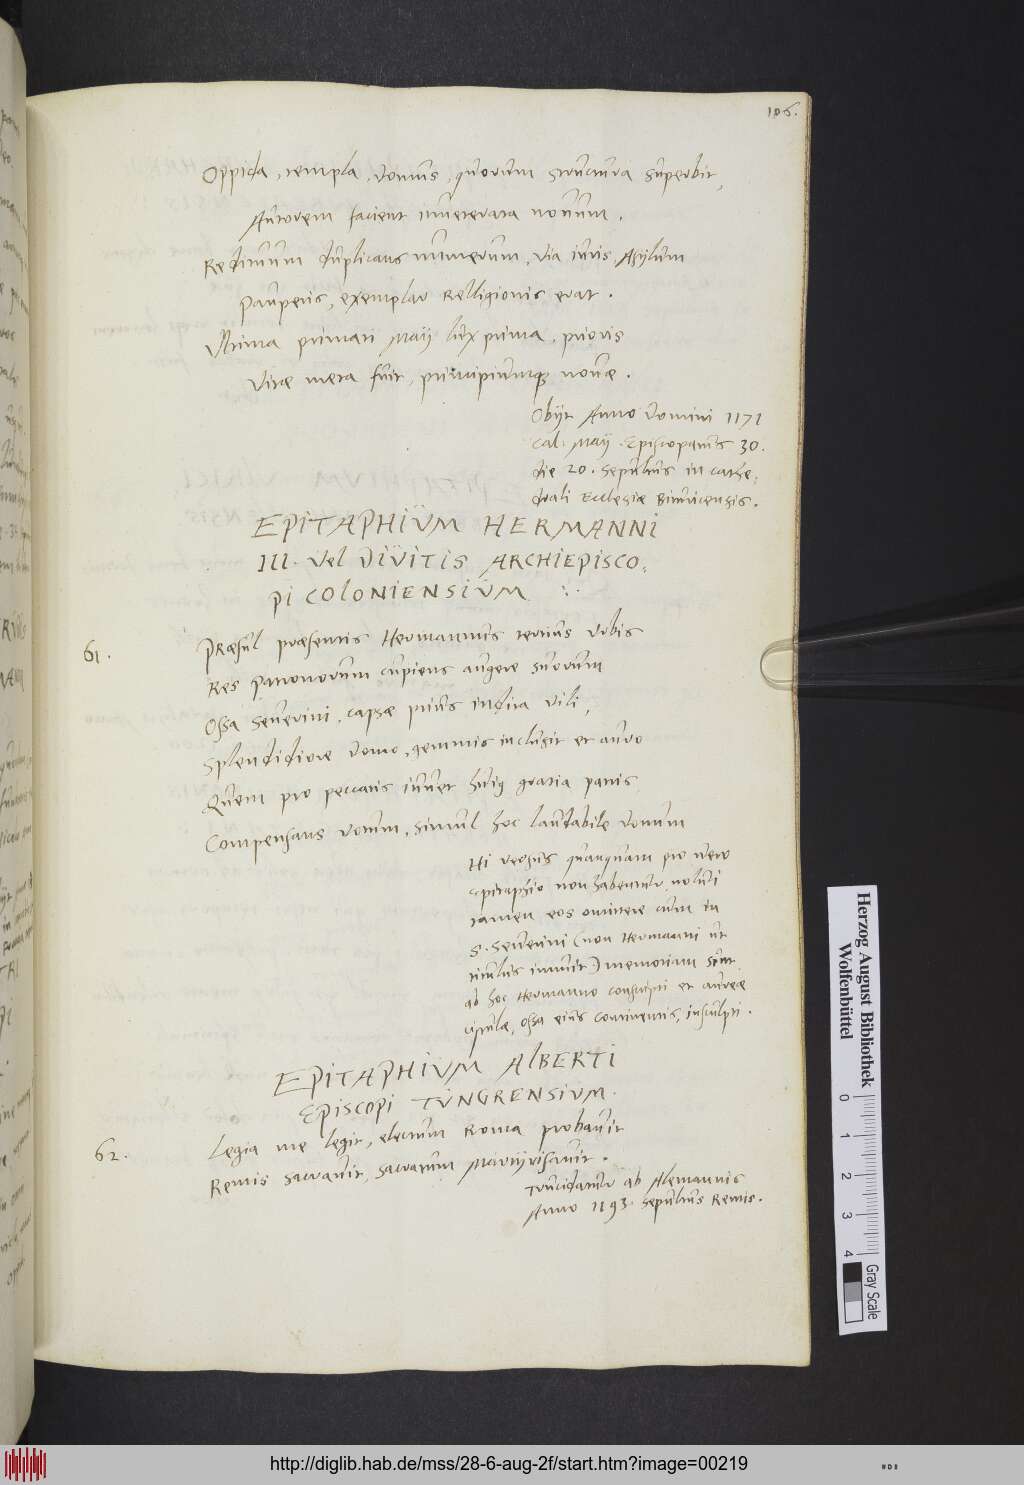 106.
Oppida, templa, domus, quorum structura superbit,
Autorem facient inveterata novum.
Redituum duplicans numerum, via iuris, Asylum
Pauperis, exemplar Relligionis erat.
Ultima primati Maij lux prima, prioris
Vitæ meta fuit, principiumq; novæ.
Obijt Anno Domini 1171
Cal. Maij Episcopatus 30.
die 20. Sepultus in cathe:
drali Ecclesiæ
EPITAPHIUM HERMANNI
III. Vel DIVITIS ARCHIEPISCO:
PI COLONIENSIUM
61.
Præsul præsentis Hermannus tertius Urbis
Res patronorum cupiens augere suorum
Ossa Severini, capsæ prius indita vili,
Splendidiore domo, gemmis inclusit et auro
Quem pro peccatis iuvet huiq gratia patris
Compensans votum, simul hoc laudabile donum
Hi versus quanquam pro vero
epitaphio non habeantur, nolui
tamen eos omittere cum in
S. Severini (non Hermanni ut
titulus innuit) memoriam sint
ab hoc Hermanno conscripti et aureæ
cistulæ, ossa eius continentis, insculpti.
EPITAPHIUM ALBERTI
EPISCOPI TUNGRENSIUM.
62.
Legia me legit, electum Roma probavit
Remis sacravit, sacratum Martyrisavit.
Trucidatur ab Alemannis
Anno 1193. Sepultus Remis.
Herzog August Bibliothek
Wolfenbüttel
0 1 2 3 4
Gray Scale
http://diglib.hab.de/mss/28-6-aug-2f/start.htm?image=00219